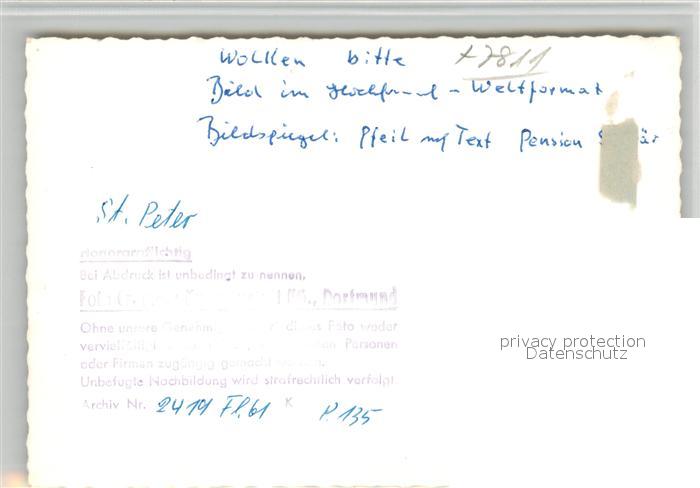 Wolken bitte +7811
Bild im Hochformat - Weltformat
Bildspiegel: Pfeil auf Text Pension
St. Peter
Honorarpflichtig
Bei Abdruck ist unbedingt zu nennen,
KG., Dortmund
Ohne unsere dieses Foto weder
Personen
oder Firmen zugängig gemacht werden.
Unbefugte Nachbildung wird strafrechtlich verfolgt.
Archiv Nr. 2419 Fl. 61 K P. 135
privacy protection
Datenschutz